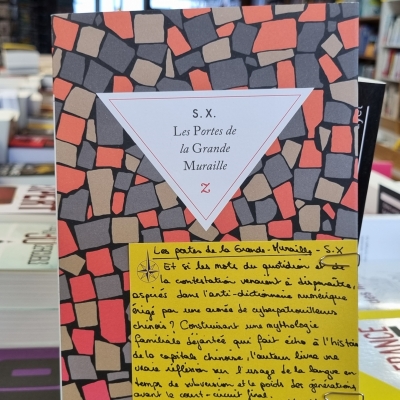 S. X.
Les Portes de
la Grande
Muraille
Z
Les portes de la Grande-Muraille - S.X
Et si les mots du quotidien et de
la contestation venaient à disparaître,
aspirés dans l'anti-dictionnaire numérique
érigé par une armée de cyberpatrouilleurs
chinois ? Construisant une mythologie
familiale déjantée qui fait écho à l'histoire
de la capitale chinoise, l'auteur livre une
vraie réflexion sur l'usage de la langue en
temps de subversion et le poids des générations
avant le court-circuit final.
FRANCE